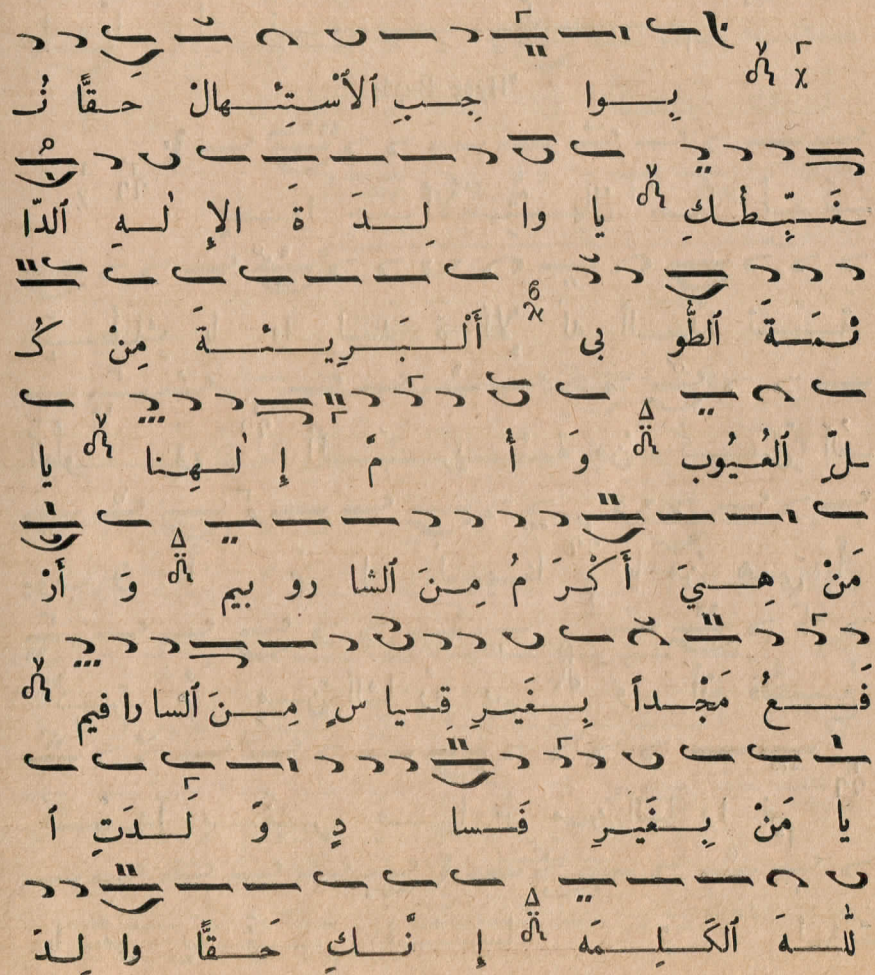 بِــوا جِــبِ ٱلْاسْتِئْــهالْ حــقًّا نُــ
ـغَــبِّــطُــكِ يا وا لِــدَ ةَ الإِ لٰــهِ ٱلدّا
ئِمَــةَ ٱلطُّو بى أَلْــبَــرِيــئــةَ مِنْ كُـ
ـلِّ ٱلعُيُوب وَ أُ مَّ إِ لٰــهِنا يا
مَنْ هِــيَ أَكْرَ مُ مِــنَ ٱلشا رو بيم وَ أَرْ
فَــعُ مَجْــداً بِــغَيــرِ قِــيا سٍ مِــنَ ٱلسا را فيم
يا مَنْ بِــغَيــرِ فَــسا دٍ وَ لَــدَتِ ٱ
للّٰــهَ ٱلكَــلِــمَه إِ نَّــكِ حَــقًّا وا لِــدَ